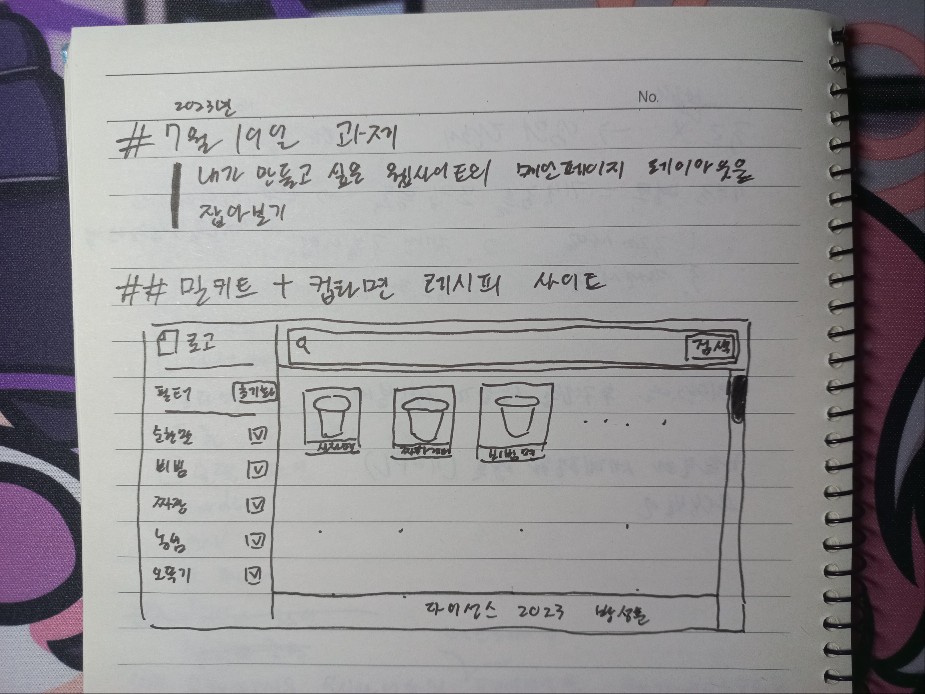 No.
2023년
# 7월 19일 과제
내가 만들고 싶은 웹사이트의 메인페이지 레이아웃을
잡아보기
## 밀키트 + 컵라면 레시피 사이트
로고
검색
필터 초기화
순한맛
비빔
짜장
농심
오뚝기
비빔면
라이센스 2023